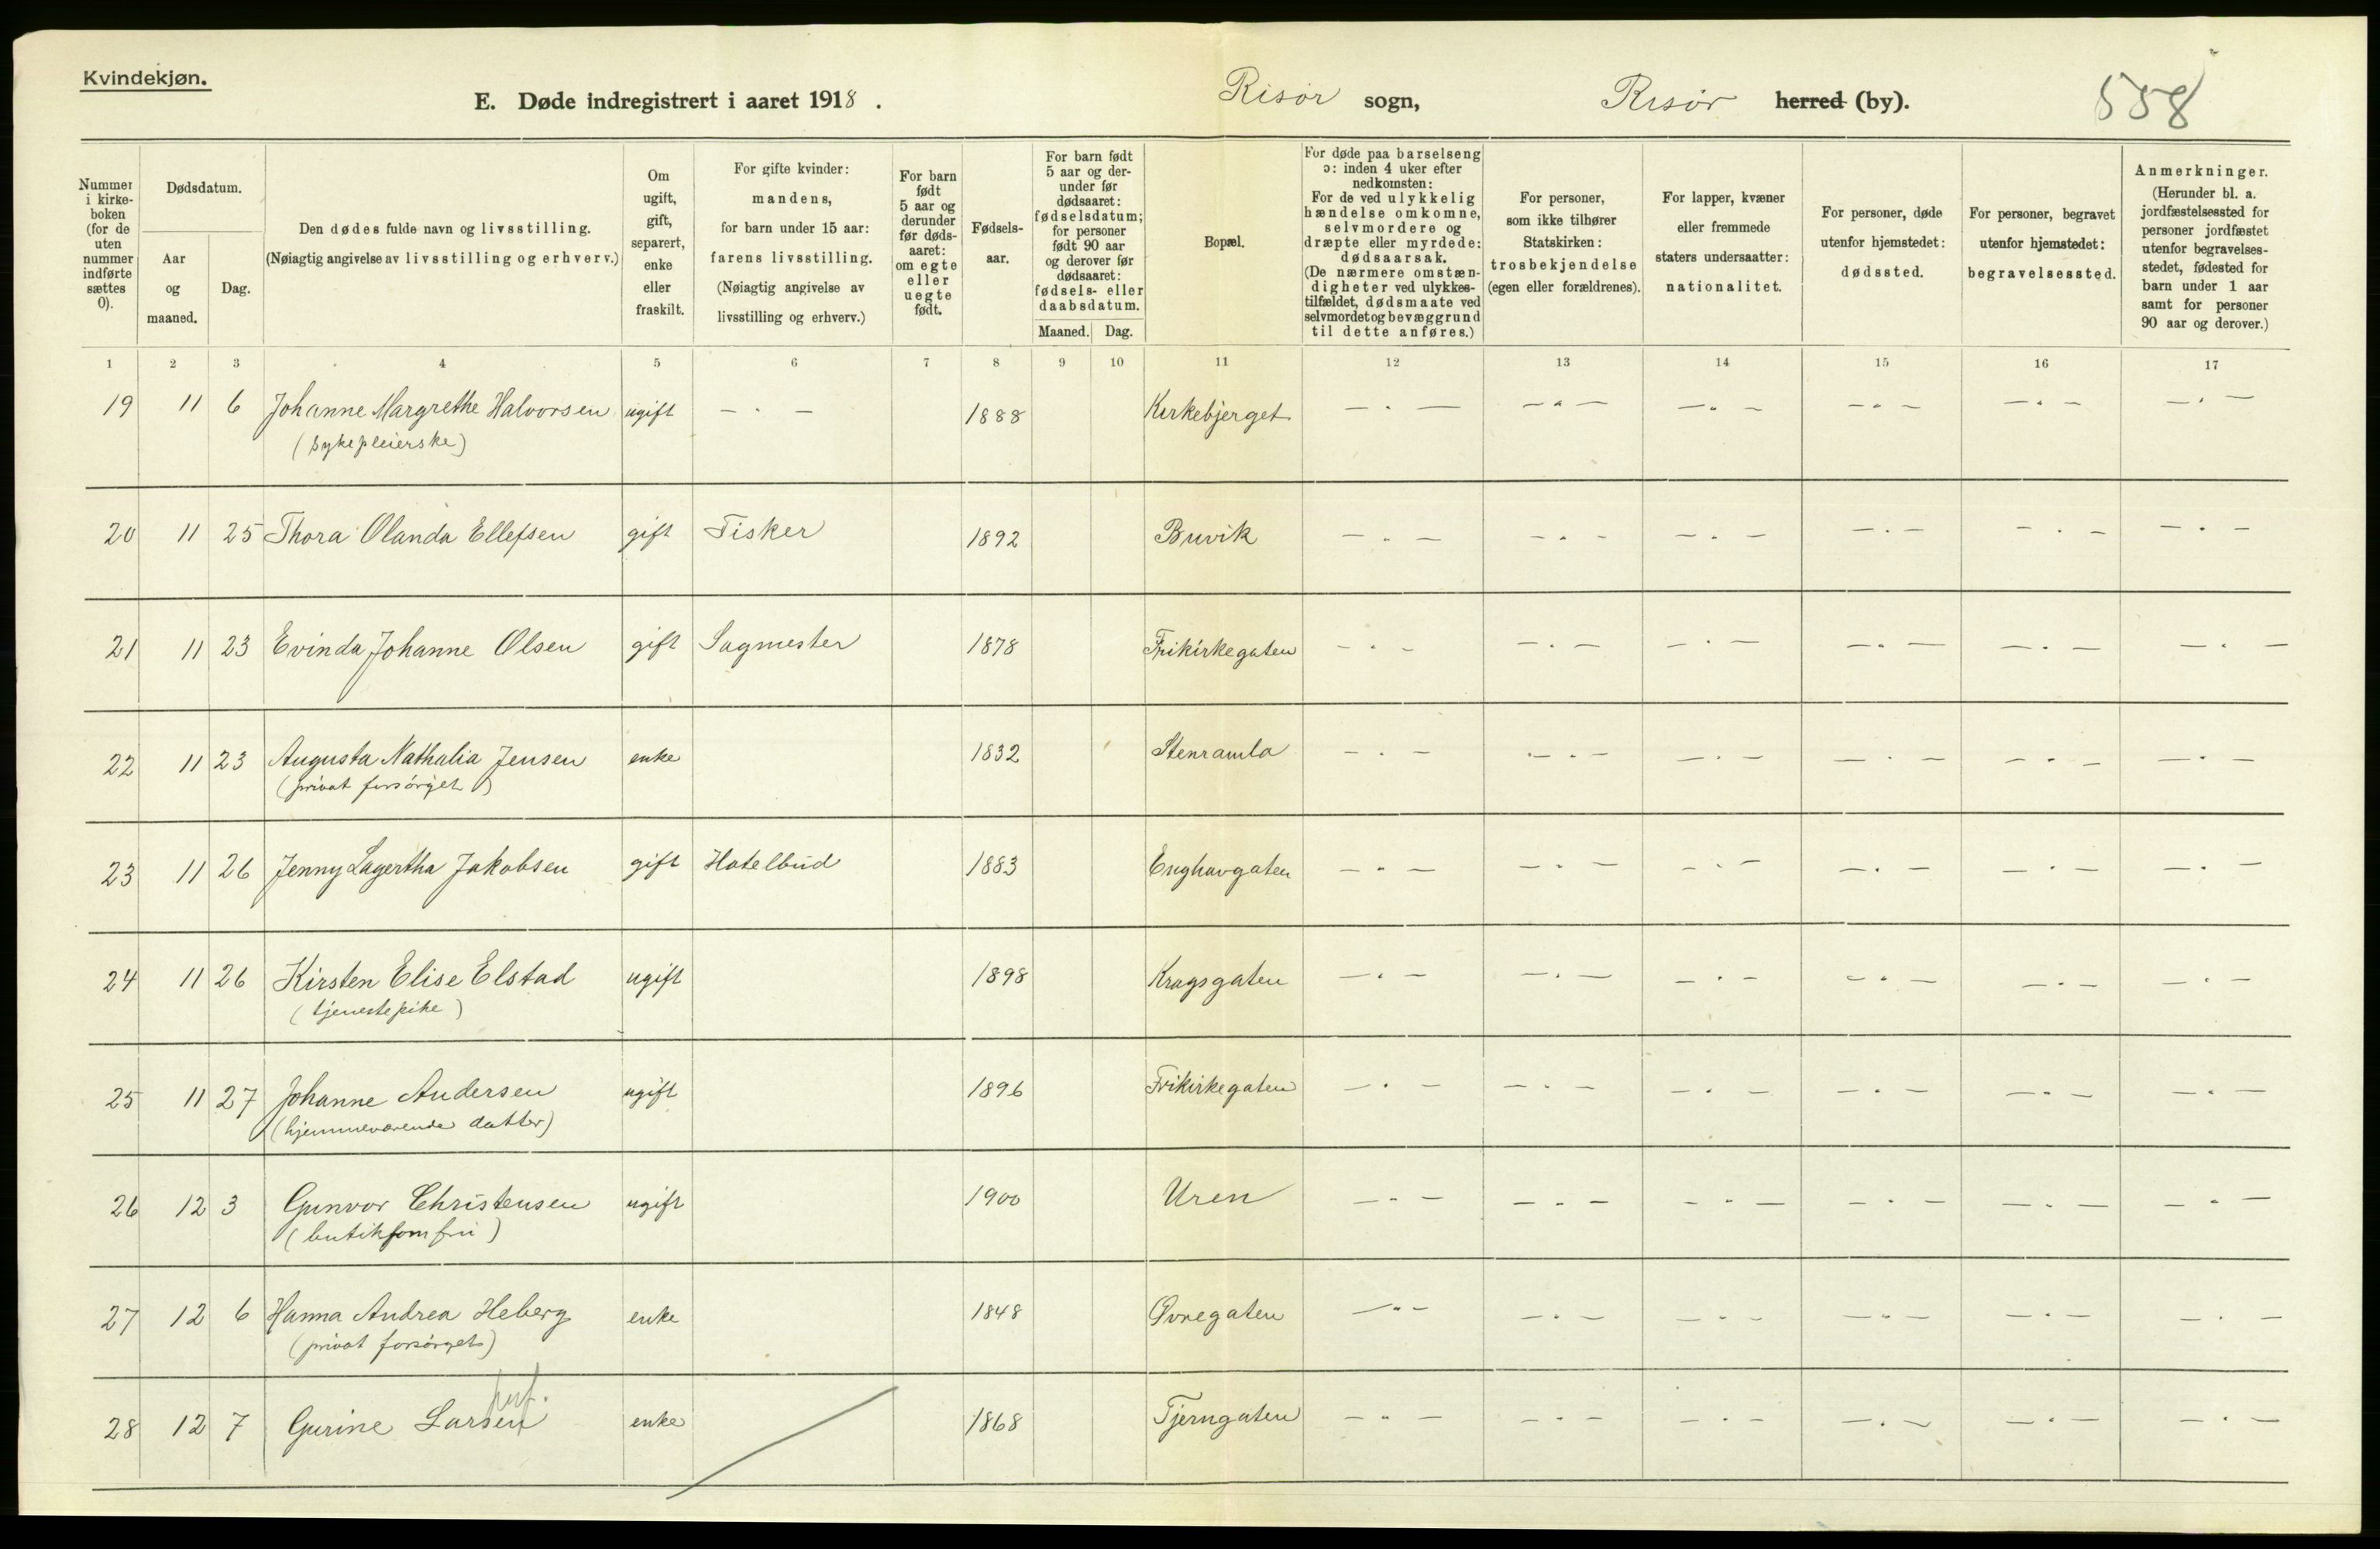 Kvindekjøn.
E. Døde indregistrert i aaret 1918 .
Risør sogn,
Risør herred (by).
558
Nummer i kirke-boken (for de uten nummer indførte sættes 0).
Dødsdatum.
Aar og maaned.
Dag.
Den dødes fulde navn og livsstilling.
(Nøiagtig angivelse av livsstilling og erhverv.)
Om ugift, gift, separert, enke eller fraskilt.
For gifte kvinder: mandens, for barn under 15 aar: farens livsstilling. (Nøiagtig angivelse av livsstilling og erhverv.)
For barn født 5 aar og derunder før døds-aaret: om egte eller uegte født.
Fødsels-aar.
For barn født 5 aar og der-under før dødsaaret: fødselsdatum; for personer født 90 aar og derover før dødsaaret: fødsels- eller daabsdatum.
Maaned. Dag.
Bopæl.
For døde paa barselseng ɔ: inden 4 uker efter nedkomsten: For de ved ulykkelig hændelse omkomne, selvmordere og dræpte eller myrdede: dødsaarsak. (De nærmere omstæn-digheter ved ulykkes-tilfældet, dødsmaate ved selvmordet og bevæggrund til dette anføres.)
For personer, som ikke tilhører Statskirken: trosbekjendelse (egen eller forældrenes).
For lapper, kvæner eller fremmede staters undersaatter: nationalitet.
For personer, døde utenfor hjemstedet: dødssted.
For personer, begravet utenfor hjemstedet: begravelsessted.
Anmerkninger. (Herunder bl. a. jordfæstelsessted for personer jordfæstet utenfor begravelses-stedet, fødested for barn under 1 aar samt for personer 90 aar og derover.)
1 2 3 4 5 6 7 8 9 10 11 12 13 14 15 16 17
19 11 6 Johanne Margrethe Halvorsen ugift — . — 1888 Kirkebjerget — . — — . — — . — — . — — . — — . —
(sykepleierske)
20 11 25 Thora Olanda Ellefsen gift Fisker 1892 Buvik — . — — . — — . — — . — — . — — . —
21 11 23 Evinda Johanne Olsen gift Sagmester 1878 Frikirkegaten — . — — . — — . — — . — — . — — . —
22 11 23 Augusta Nathalia Jensen enke 1832 Stenramla — . — — . — — . — — . — — . — — . —
(privat forsørget)
23 11 26 Jenny Lagertha Jakobsen gift Hotelbud 1883 Enghavgaten — . — — . — — . — — . — — . — — . —
24 11 26 Kirsten Elise Elstad ugift 1898 Kragsgaten — . — — . — — . — — . — — . — — . —
(tjenestepike)
25 11 27 Johanne Andersen ugift 1896 Frikirkegaten — . — — . — — . — — . — — . — — . —
(hjemmeværende datter)
26 12 3 Gunvor Christensen ugift 1900 Uren — . — — . — — . — — . — — . — — . —
(butikjomfru)
27 12 6 Hanna Andrea Heberg enke 1848 Øvregaten — . — — . — — . — — . — — . — — . —
(privat forsørget)
28 12 7 Gurine Larsen enke 1868 Tjerngaten — . — — . — — . — — . — — . — — . —